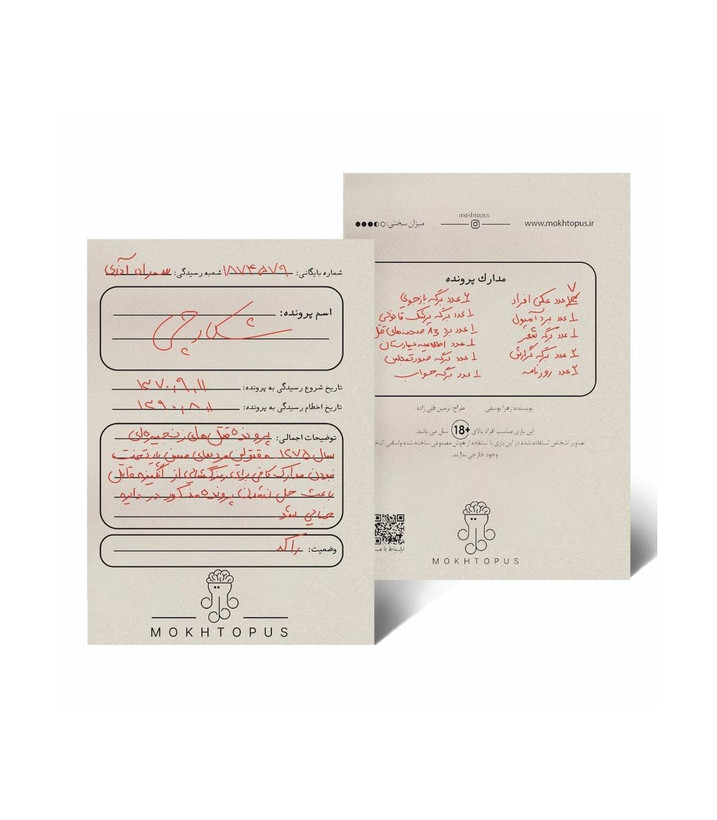 شماره بایگانی: ۱۸۷۴۵۷۹ شعبه رسیدگی: سهراه آذری
اسم پرونده:
شکارچی
تاریخ شروع رسیدگی به پرونده: ۱۳۷۰,۹,۱۱
تاریخ اختام رسیدگی به پرونده: ۱۳۹۰,۸,۱
توضیحات اجمالی: پرونده قتل‌های زنجیره‌ای
سال ۱۳۷۵ مقتولین مردهای مسن به علت
نبودن مدارک کافی برای از انگیزه قاتل
باعث حل نشدن پرونده مذکور در دایره
جنایی شد
وضعیت: راکد
MOKHTOPUS
mokhtopus
www.mokhtopus.ir
میزان سختی:
مدارک پرونده
۷ عدد عکس افراد
۱ عدد برد آمپول
۱ عدد برگه شعر
۲ عدد برگه گزارش
۲ عدد روزنامه
۴ عدد برگه بازجویی
۱ عدد برگه پزشک قانونی
۱ عدد برد A3 صحنه‌های قتل
۱ عدد اطلاعیه بیمارستان
۱ عدد برگه صورتمجلس
۱ عدد برگه جواب
نویسنده: زهرا یوسفی طراح: نرمین قلی زاده
این بازی مناسب افراد بالای 18+ سال می باشد.
تصاویر اشخاص استفاده شده در این بازی با استفاده از هوش مصنوعی ساخته شده و
وجود خارجی ندارند.
ارتباط با
MOKHTOPUS